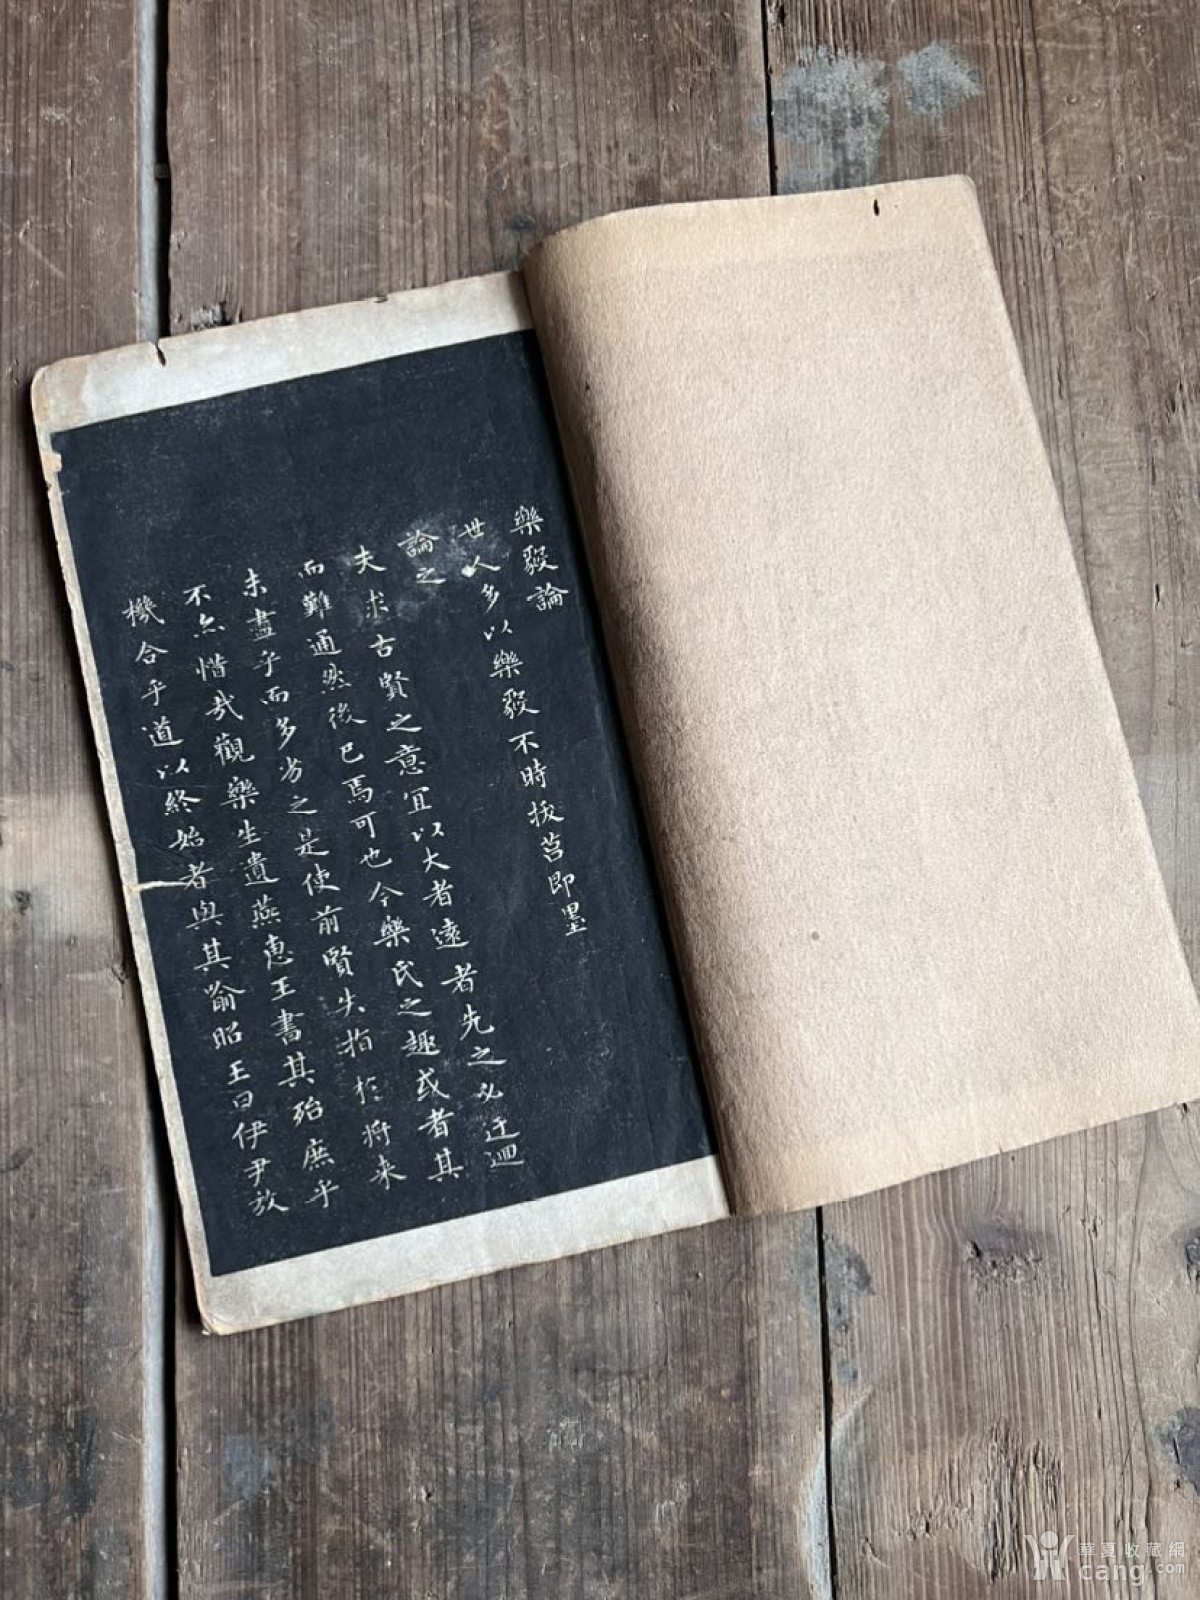 樂毅論
世人多以樂毅不時拔莒即墨
論之
夫求古賢之意宜以大者遠者先之必迂迴
而難通然後已焉可也今樂氏之趣或者其
未盡乎而多劣之是使前賢失指於將来
不亦惜哉觀樂生遺燕惠王書其殆庶乎
機合乎道以終始者與其喻昭王曰伊尹放
華夏收藏網
cang.com